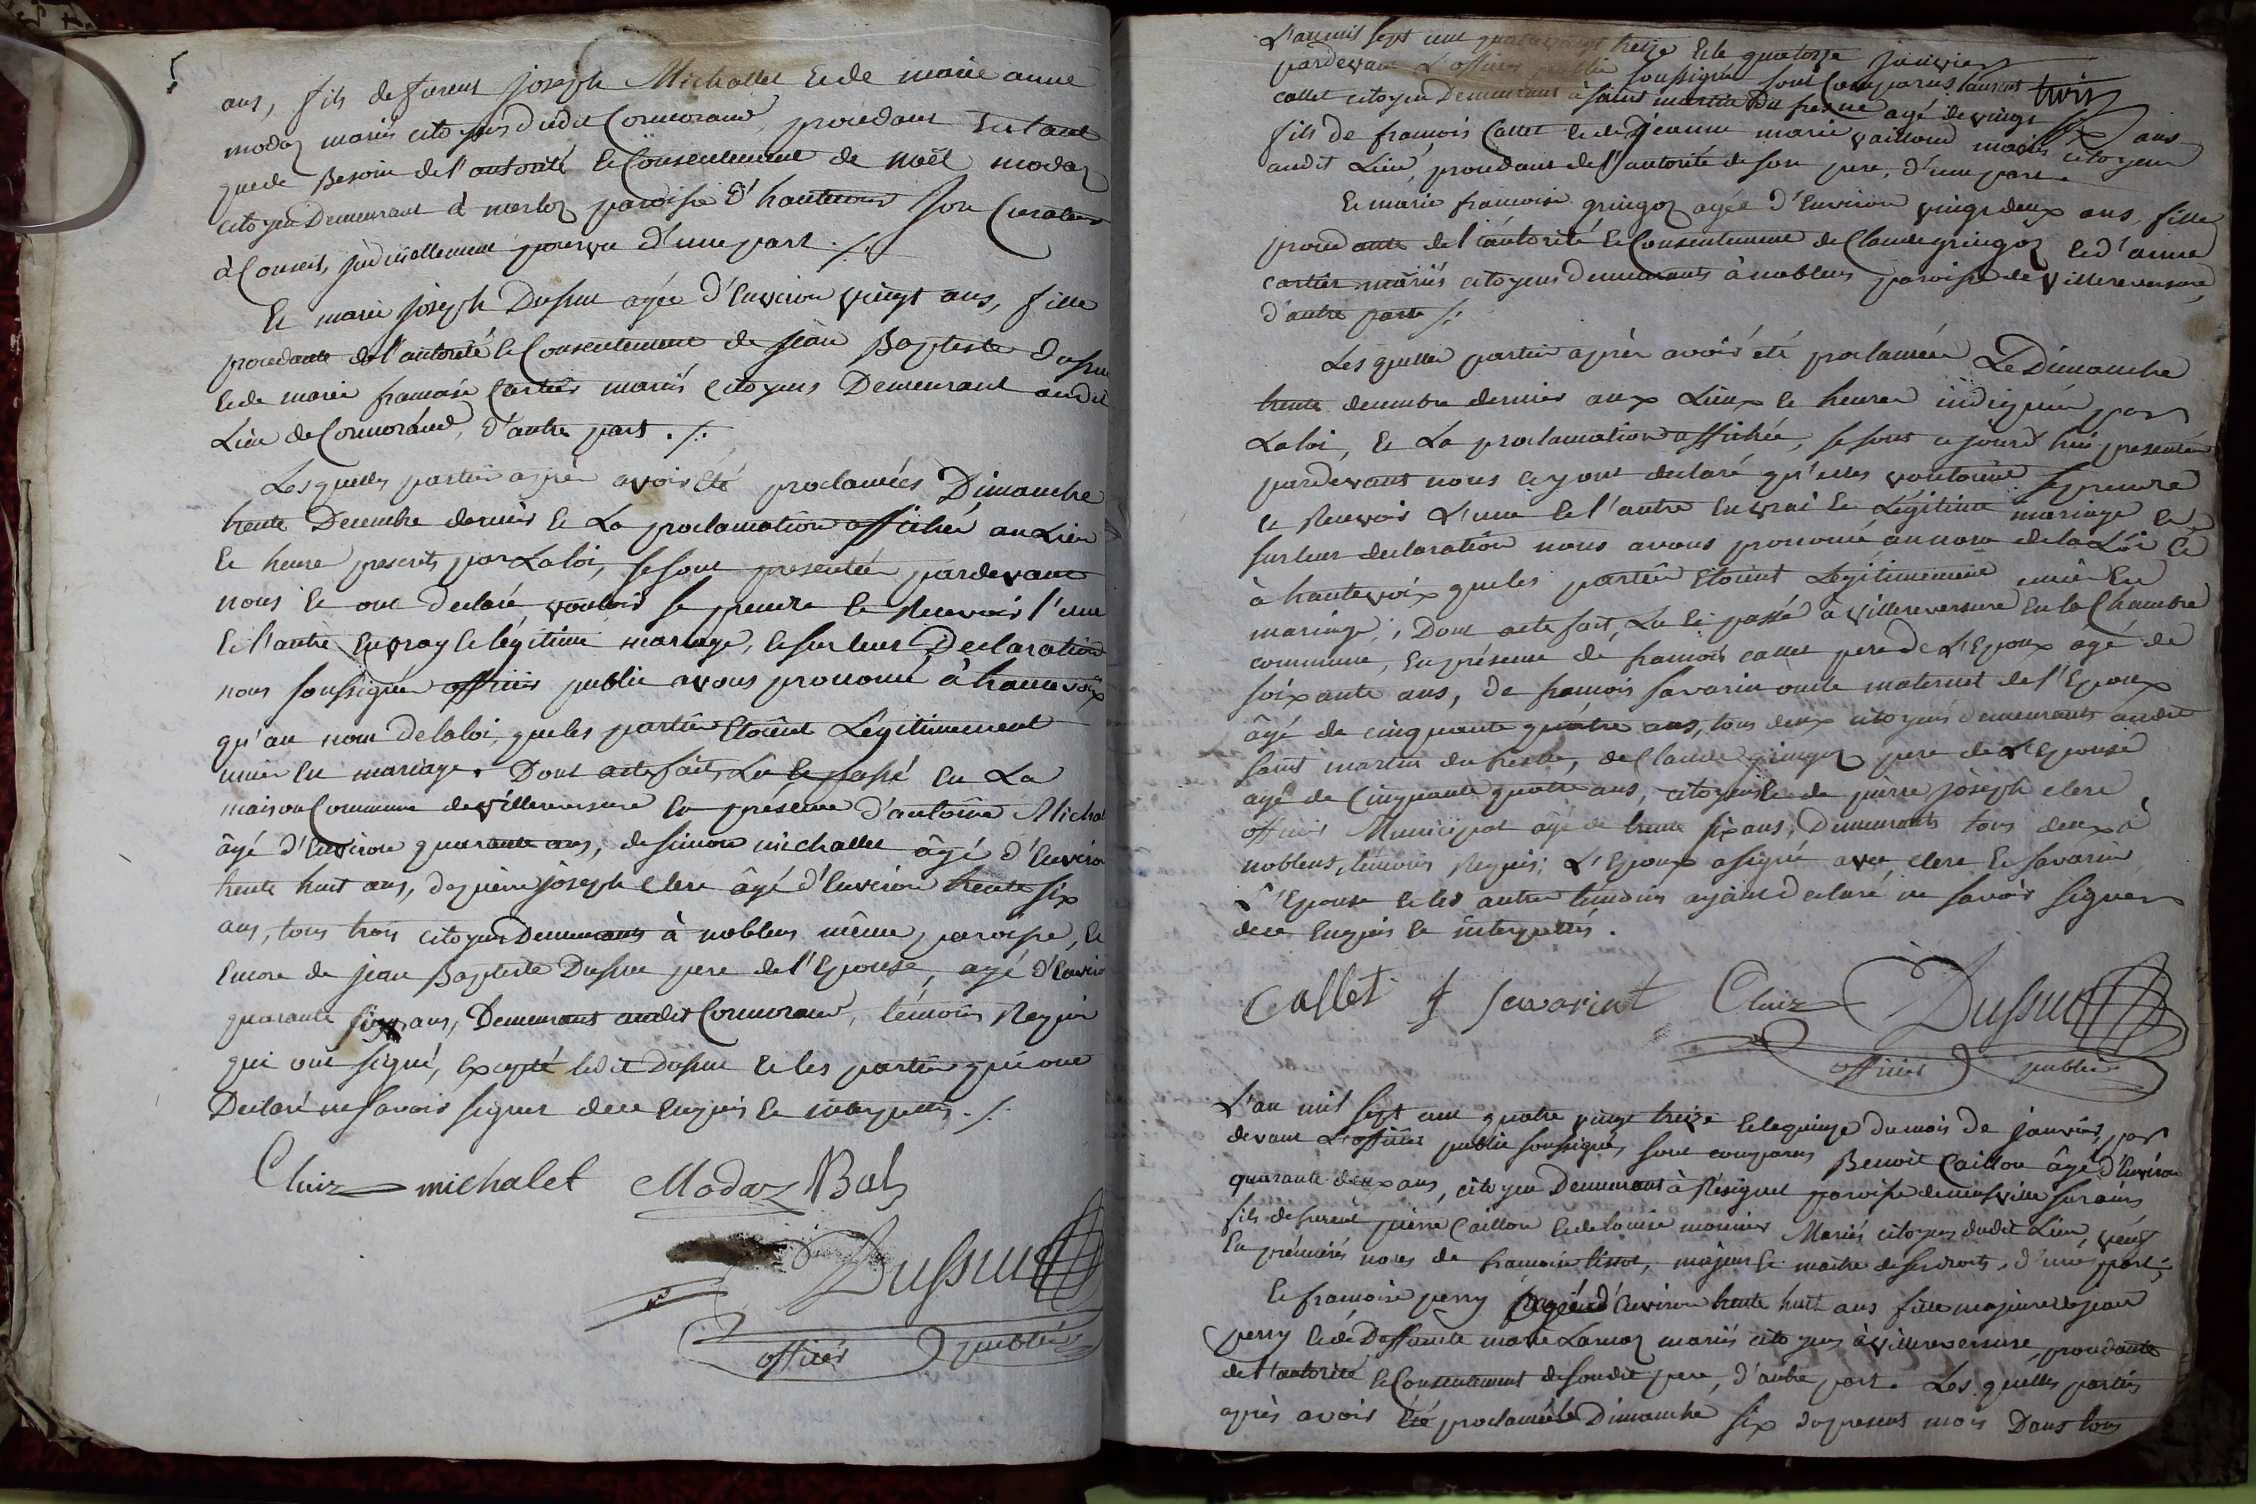 ans, fils de furent joseph Michallet et de marie anne
modaz mariés citoyens dudit Cormorand, procedant entant
que de Besoin de l'autorité et Consentement de noël modaz
citoyen Demeurant à merloz paroisse d'hautecour son Curateur
à Conseils judiciellement pourvu d'une part ./.
Et marie joseph Dussuc agée d'Environ vingt ans, fille
procedante de l'autorité et Consentement de jean Baptiste dussuc
et de marie francoise Cartier mariés citoyens Demeurant audit
Lieu de Cormorand, d'autre part ./.
Lesquelles parties après avoir été proclamées Dimanche
trente Decembre dernier et La proclamation affichée au Lieu
et heure prescrits par La loi, se sont presentées pardevant
nous et ont declaré vouloir se prendre et Recevoir l'une
et l'autre en vray et légitime mariage, et sur leur Declaration
nous soussigné officier public avons prononcé à haute voix
qu'au nom de la loi que les parties Etoient Legitimement
unies en mariage. Dont acte fait, Lu et passé en La
maison Commune de villereversure en présence d'antoine Michal
âgé d'Environ quarante ans, de simon michallet âgé d'Environ
trente huit ans, de pierre joseph Clerc âgé d'Environ trente six
ans, tous trois citoyens Demeurants à noblens même paroisse, et
Encore de jean Baptiste Dussuc pere de l'Epouse, agé d'Enviro
quarante ans, Demeurant audit Cormorand, témoins Requis
qui ont signé, excepté ledit Dussuc et les parties qui ont
Declaré ne savoir signer de ce Enquis et interpellés ./.
Cluiz michalet Modaz Bal
Dussuc
officier public
L'an mil sept cent quatre vingt treize et le quatorze janvier
pardevant L'officier public soussigné sont Comparus Laurent
callet citoyen Demeurant à saint martin du fresne agé de vingt trois
fils de francois Callet et de jeanne marie vaillond mariés citoyens ans
audit Lieu, procedant de l'autorité de son pere, d'une part.
Et marie francoise gringoz agée d'Environ vingt deux ans, fille
procedante de l'autorité et Consentement de Claude gringoz et d'anne
cartier mariés citoyens demeurants à noblens paroisse de villereversure,
d'autre part ./.
Lesquelles parties après avoir été proclamées Le Dimanche
trente decembre dernier aux Lieux et heures indiquées par
La loi, et La proclamation affichée, se sont ce jourd'hui presentées
pardevant nous et y ont declaré qu'elles vouloient se prendre
et Recevoir L'une et l'autre en vrai et Légitime mariage et
sur leur declaration nous avons prononcé au nom de la Loi et
à haute voix que les parties Etoient Legitimement unies En
mariage; Dont acte fait, Lu et passé à villereversure En la Chambre
commune, En présence de francois callet pere de L'Epoux agé de
soixante ans, de francois savarin oncle maternel de l'Epoux
âgé de cinquante quatre ans, tous deux citoyens demeurants audit
saint martin du fresne, de Claude gringoz pere de L'Epouse
agé de Cinquante quatre ans, citoyens et de pierre joseph clerc
officier Municipal âgé de trente six ans, Demeurants tous deux à
noblens, témoins Requis; L'Epoux a signé avec clerc et savarin
L'Epouse et les autres témoins ayant declaré ne savoir signer
de ce Enquis et interpellés.
Callet f savarint Cluiz Dussuc
officier public
L'an mil sept cent quatre vingt treize et le quinze du mois de janvier, par
devant L'officier public soussigné, sont comparus Benoit Caillou âgé d'Environ
quarante deux ans, citoyen Demeurant à Resignel paroisse de neufville sur ains
fils de furent pierre Caillou et de Louise monnier Mariés citoyens dudit Lieu, veuf
En premieres noces de francoise tissot, majeur et maitre de ses droits, d'une part;
Et francoise perry agée d'Environ trente huit ans fille majeure de jean
perry et de Deffunte marie Lamoz mariés citoyens à villereversure, procedante
de l'autorité et Consentement de son dit pere, d'autre part. Lesquelles parties
après avoir été proclamées le Dimanche six du present mois Dans tous